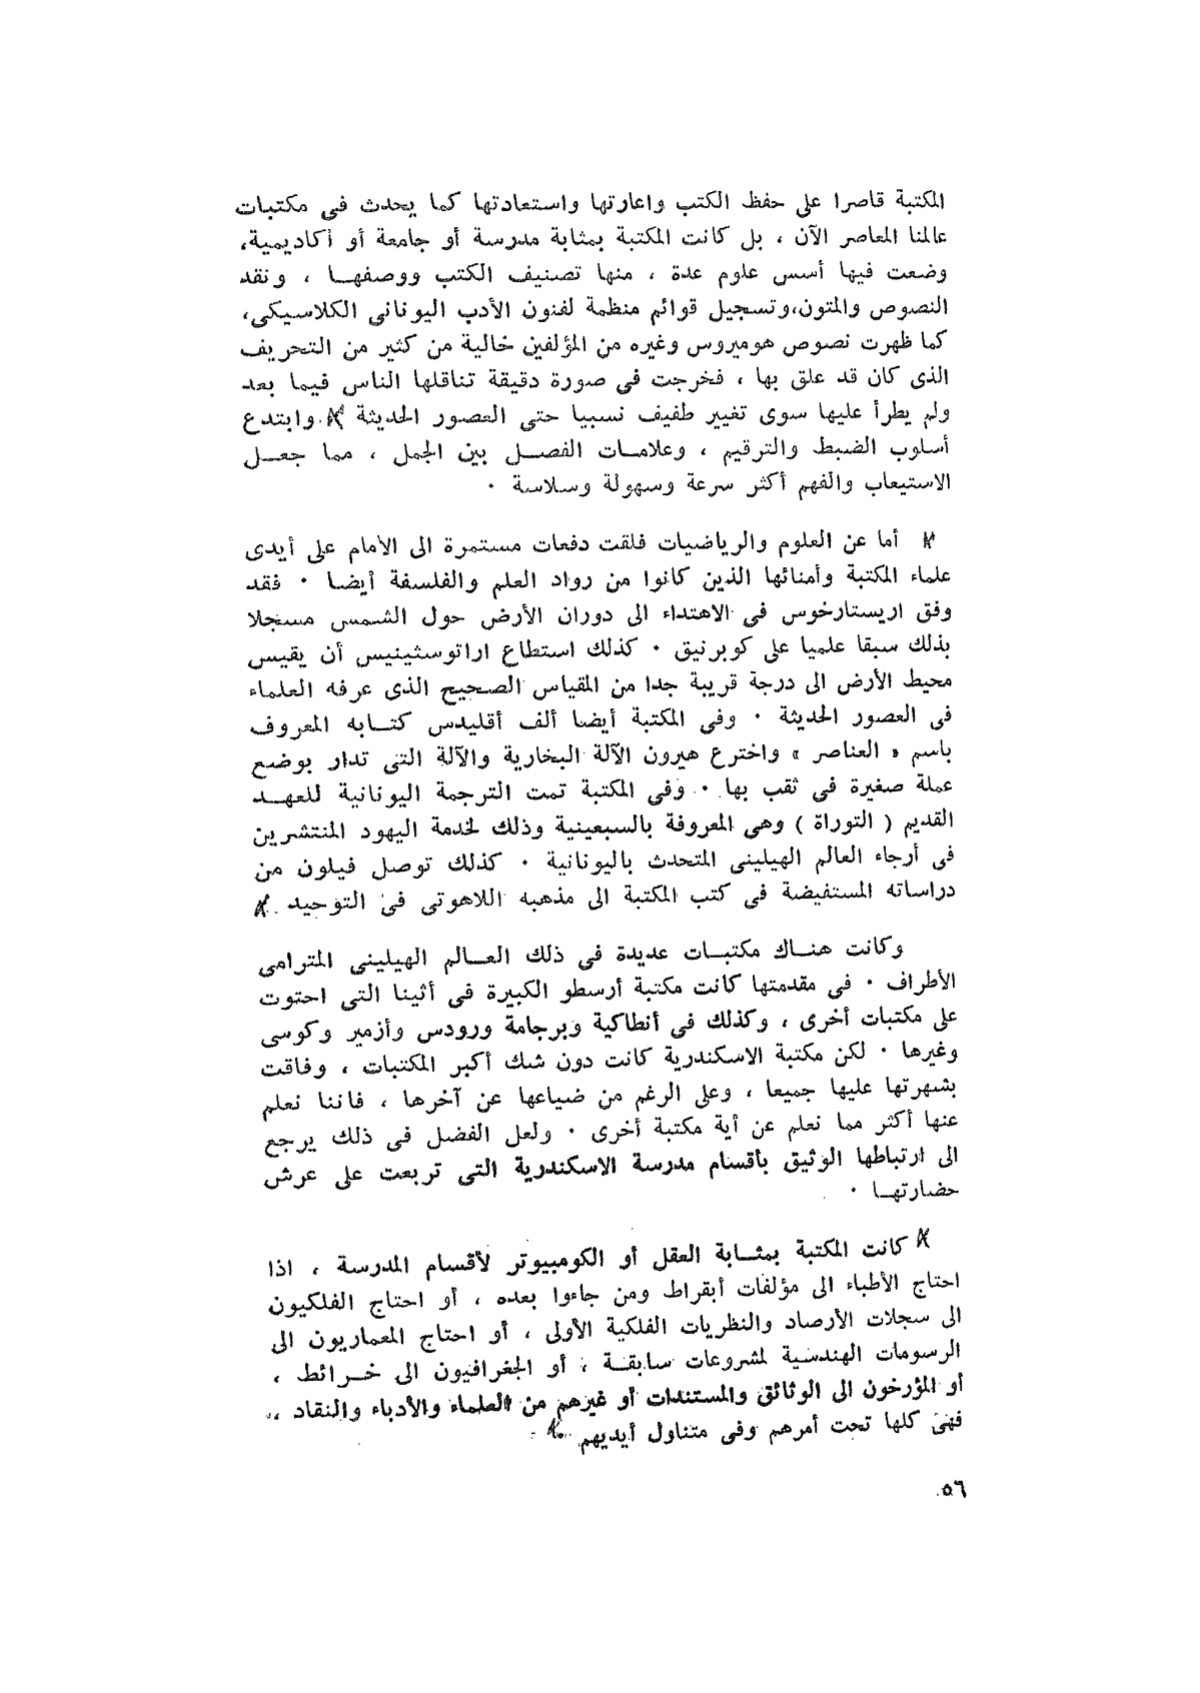 المكتبة قاصرا على حفظ الكتب واعارتها واستعادتها كما يحدث فى مكتبات
عالمنا المعاصر الآن ، بل كانت المكتبة بمثابة مدرسة أو جامعة أو أكاديمية،
وضعت فيها أسس علوم عدة ، منها تصنيف الكتب ووصفهـا ، ونقد
النصوص والمتون،وتسجيل قوائم منظمة لفنون الأدب اليونانى الكلاسيكى،
كما ظهرت نصوص هوميروس وغيره من المؤلفين خالية من كثير من التحريف
الذى كان قد علق بها ، فخرجت فى صورة دقيقة تناقلها الناس فيما بعد
ولم يطرأ عليها سوى تغيير طفيف نسبيا حتى العصور الحديثة . وابتدع
أسلوب الضبط والترقيم ، وعلامـات الفصـل بين الجمل ، مما جعـل
الاستيعاب والفهم أكثر سرعة وسهولة وسلاسة ٠
أما عن العلوم والرياضيات فلقت دفعات مستمرة الى الأمام على أيدى
علماء المكتبة وأمنائها الذين كانوا من رواد العلم والفلسفة أيضـا ٠ فقد
وفق اريستارخوس فى الاهتداء الى دوران الأرض حول الشمس مسجلا
بذلك سبقا علميا على كوبرنيق ٠ كذلك استطاع اراتوسثينيس أن يقيس
محيط الأرض الى درجة قريبة جدا من المقياس الصحيح الذى عرفه العلماء
فى العصور الحديثة ٠ وفى المكتبة أيضا ألف أقليدس كتـابه المعروف
باسم « العناصر » واخترع هيرون الآلة البخارية والآلة التى تدار بوضع
عملة صغيرة فى ثقب بها ٠ وفى المكتبة تمت الترجمة اليونانية للعهـد
القديم ( التوراة ) وهى المعروفة بالسبعينية وذلك لخدمة اليهود المنتشرين
فى أرجاء العالم الهيلينى المتحدث باليونانية ٠ كذلك توصل فيلون من
دراساته المستفيضة فى كتب المكتبة الى مذهبه اللاهوتى فى التوحيد .
وكانت هنـاك مكتبـات عديدة فى ذلك العـالم الهيلينى المترامى
الأطراف ٠ فى مقدمتها كانت مكتبة أرسطو الكبيرة فى أثينا التى احتوت
على مكتبات أخرى ، وكذلك فى أنطاكية وبرجامة ورودس وأزمير وكوسى
وغيرها ٠ لكن مكتبة الاسكندرية كانت دون شك أكبر المكتبات ، وفاقت
بشهرتها عليها جميعا ، وعلى الرغم من ضياعها عن آخرها ، فاننا نعلم
عنها أكثر مما نعلم عن أية مكتبة أخرى ٠ ولعل الفضل فى ذلك يرجع
الى ارتباطها الوثيق بأقسام مدرسة الاسكندرية التى تربعت على عرش
حضارتهـا ٠
كانت المكتبة بمثـابة العقل أو الكومبيوتر لأقسام المدرسة ، اذا
احتاج الأطباء الى مؤلفات أبقراط ومن جاءوا بعده ، أو احتاج الفلكيون
الى سجلات الأرصاد والنظريات الفلكية الأولى ، أو احتاج المعماريون الى
الرسومات الهندسية لمشروعات سابقـة ، أو الجغرافيون الى خـرائط ،
أو المؤرخون الى الوثائق والمستندات أو غيرهم من العلماء والأدباء والنقاد ،
فهى كلها تحت أمرهم وفى متناول أيديهم .
٥٦